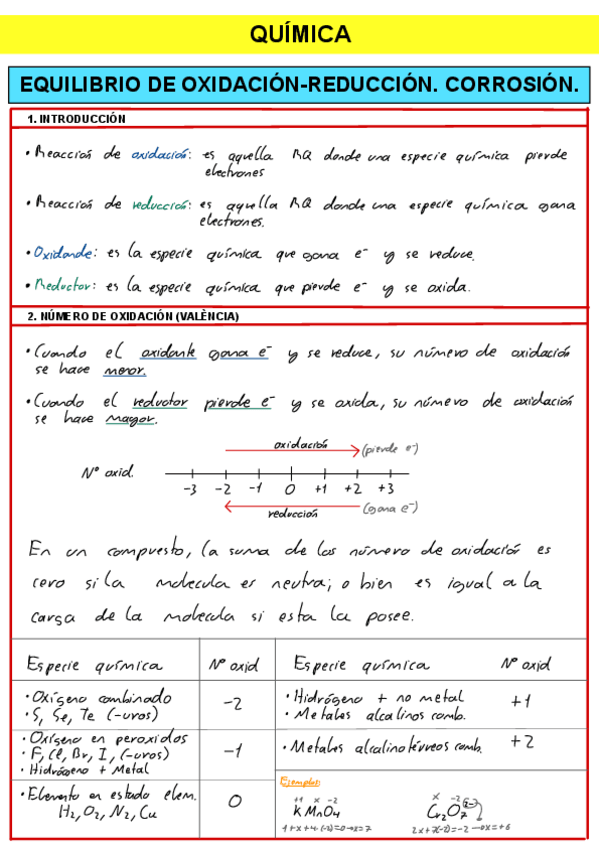 QUÍMICA
EQUILIBRIO DE OXIDACIÓN-REDUCCIÓN. CORROSIÓN.
1. INTRODUCCIÓN
• Reacción de oxidación: es aquella RQ donde una especie química pierde
electrones
• Reacción de reducción: es aquella RQ donde una especie química gana
electrones.
• Oxidande: es la especie química que gana e⁻ y se reduce.
• Reductor: es la especie química que pierde e⁻ y se oxida.
2. NÚMERO DE OXIDACIÓN (VALÈNCIA)
• Cuando el oxidante gana e⁻ y se reduce, su número de oxidación
se hace menor.
• Cuando el reductor pierde e⁻ y se oxida, su número de oxidación
se hace mayor.
oxidación (pierde e⁻)
Nº oxid.
-3 -2 -1 0 +1 +2 +3
reducción (gana e⁻)
En un compuesto, la suma de los número de oxidación es
cero si la molecula es neutra; o bien es igual a la
carga de la molecula si esta la posee.
Especie química Nº oxid Especie química Nº oxid
• Oxígeno combinado
• S, Se, Te (-uros)
-2
• Hidrógeno + no metal
• Metales alcalinos comb.
+1
• Oxígeno en peroxidos
• F, Cl, Br, I, (-uros)
• Hidrógeno + Metal
-1
• Metales alcalinotérreos comb.
+2
• Elemento en estado elem.
H₂, O₂, N₂, Cu
0
Ejemplos:
+1 x -2
KMnO₄
1+x+4·(-2)=0→x=7
x -2
Cr₂O₇ (2-)
2x+7(-2)=-2→x=+6